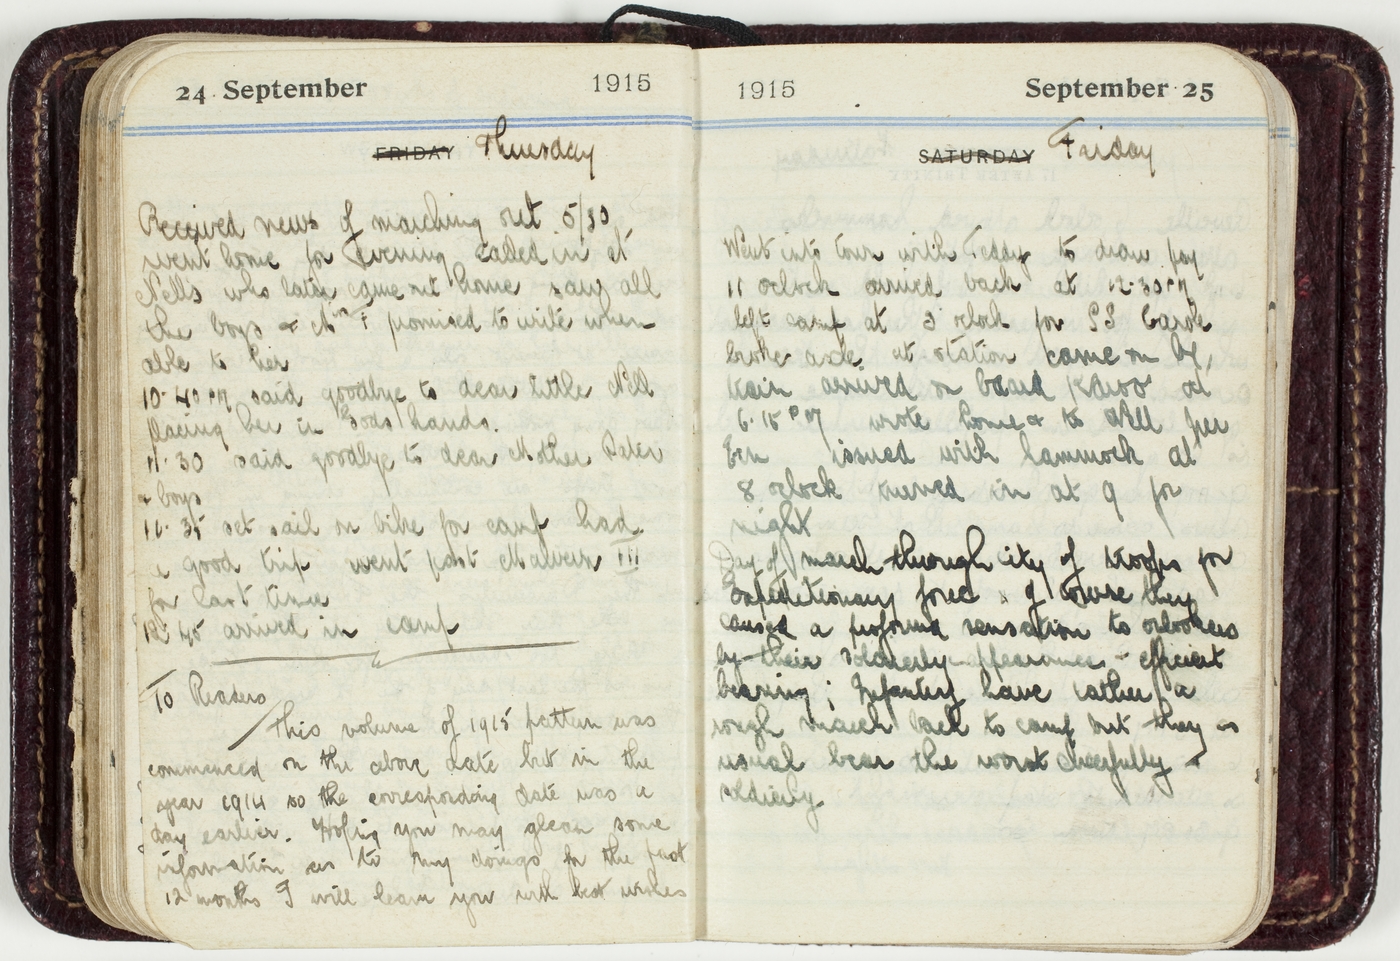 24 September 1915
FRIDAY Thursday
Received news of marching out 5/30
went home for Evening called in at
Nell's who later came out home saw all
the boys & promised to write when
able to her
10.40 PM said goodbye to dear little Nell
placing her in Gods hands.
11.30 said goodbye to dear Mother Pater
& boys
11.35 set sail on bike for camp had
a good trip went past Malvern III
for last time
12.45 arrived in camp
To Readers
This volume of 1915 pattern was
commenced on the above date but in the
year 1914 so the corresponding date was a
day earlier. Hoping you may glean some
information as to my doings for the past
12 months I will leave you with best wishes
1915 September 25
SATURDAY Friday
Went into town with Teddy to draw pay
11 oclock arrived back at 12.30 PM
left camp at 3 oclock for SS Karoo
broke axle at station came on by
train arrived on board Karoo at
6.15 PM wrote home & to Nell per
Ern issued with hammock at
8 oclock turned in at 9 for
night
Day of march through city of troops for
Expeditionary force & of course they
caused a profound sensation to onlookers
by their soldierly appearance & efficient
bearing; Infantry have rather a
rough march back to camp but they as
usual bear the worst cheerfully &
soldierly